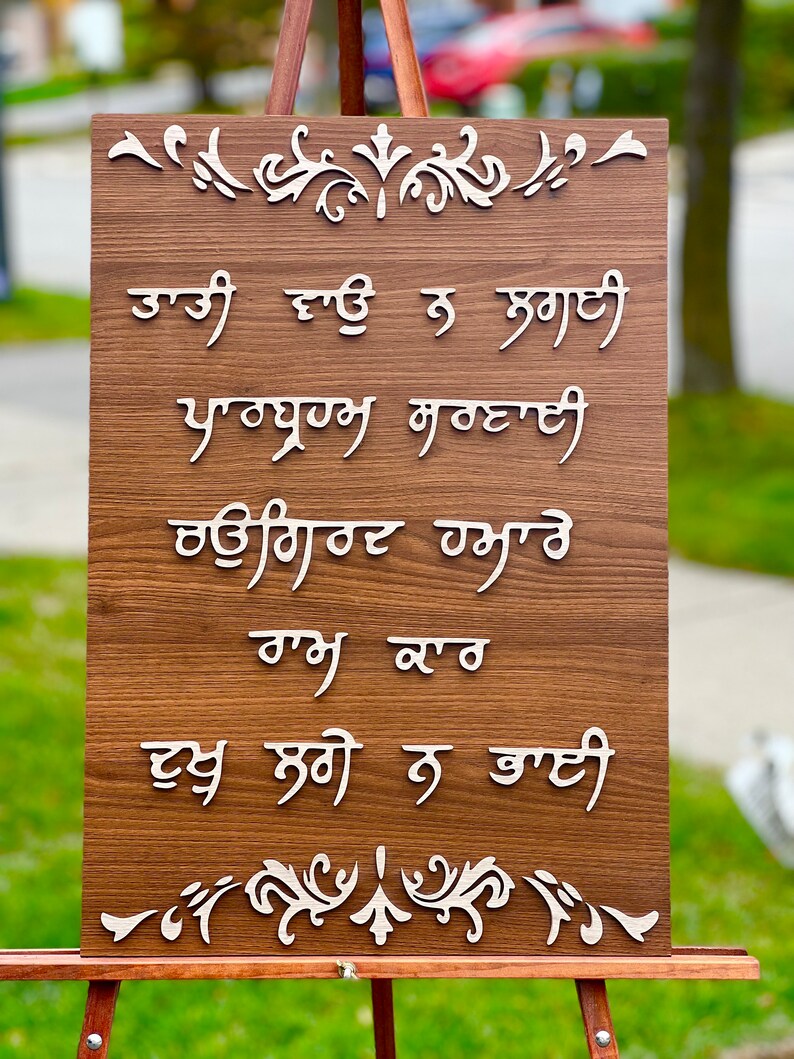 ਤਾਤੀ ਵਾਉ ਨ ਲਗਈ
ਪਾਰਬ੍ਰਹਮ ਸਰਣਾਈ
ਚਉਗਿਰਦ ਹਮਾਰੇ
ਰਾਮ ਕਾਰ
ਦੁਖੁ ਲਗੇ ਨ ਭਾਈ